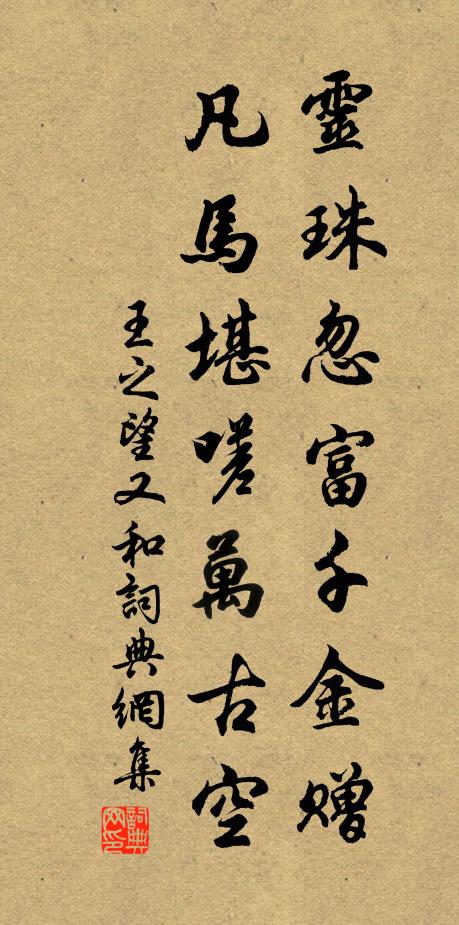 靈珠忽富千金贈
凡馬堪嗟萬古空
王之望又和詞典網集
詞典网印